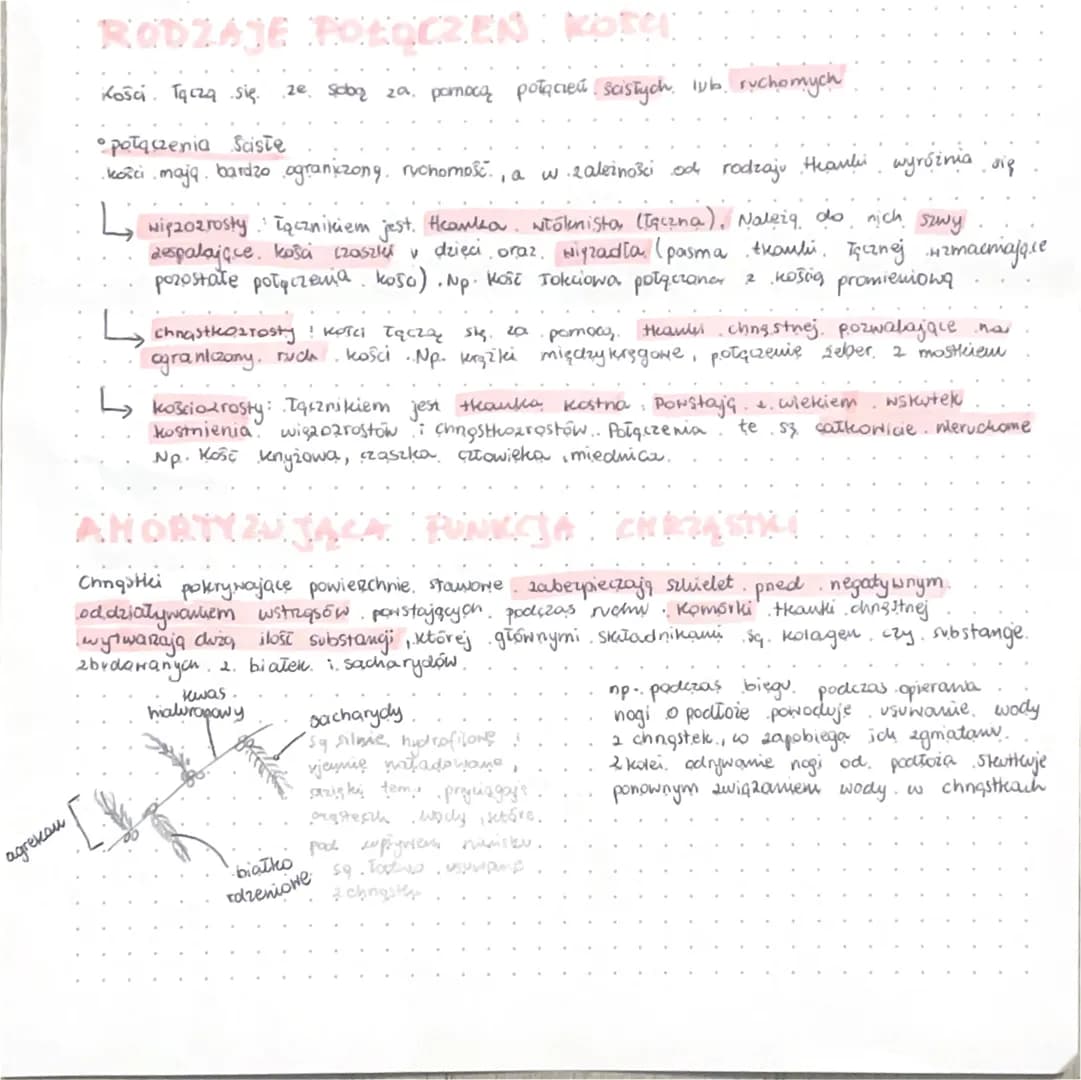 RODZAJE POŁĄCZEŃ KOŚCI
Kości łączą się ze sobą za pomocą połączeń ścisłych lub ruchomych
• połączenia ścisłe
kości mają bardzo ograniczoną ruchomość, a w zależności od rodzaju tkanki wyróżnia się
więzozrosty: łącznikiem jest tkanka włóknista (łączna). Należą do nich szwy
zespalające kości czaszki u dzieci oraz więzadła (pasma tkanki łącznej wzmacniające
pozostałe połączenia kości). Np. kość łokciowa połączona z kością promieniową
chrząstkozrosty: kości łączą się za pomocą tkanki chrzęstnej pozwalające na
ograniczony ruch kości. Np. krążki międzykręgowe, połączenie żeber z mostkiem
kościozrosty: Łącznikiem jest tkanka kostna. Powstają z wiekiem wskutek
kostnienia więzozrostów i chrząstkozrostów. Połączenia te są całkowicie nieruchome
Np. Kość krzyżowa, czaszka człowieka, miednica.
AMORTYZUJĄCA FUNKCJA CHRZĄSTKI
Chrząstki pokrywające powierzchnie stawowe zabezpieczają szkielet przed negatywnym
oddziaływaniem wstrząsów powstających podczas ruchu. Komórki tkanki chrzęstnej
wytwarzają dużą ilość substancji, której głównymi składnikami są kolagen czy substancje
zbudowanych z białek i sacharydów.
kwas
hialuronowy
sacharydy
są silnie hydrofilowe i
ujemnie naładowane,
dzięki temu przyciągają
cząsteczki wody, które
pod wpływem nacisku
są łatwo usuwane
z chrząstki
agrekan
białko
rdzeniowe
np. podczas biegu podczas opierania
nogi o podłoże powoduje usuwanie wody
z chrząstek, co zapobiega ich zgniataniu.
Z kolei odrywanie nogi od podłoża skutkuje
ponownym związaniem wody w chrząstkach